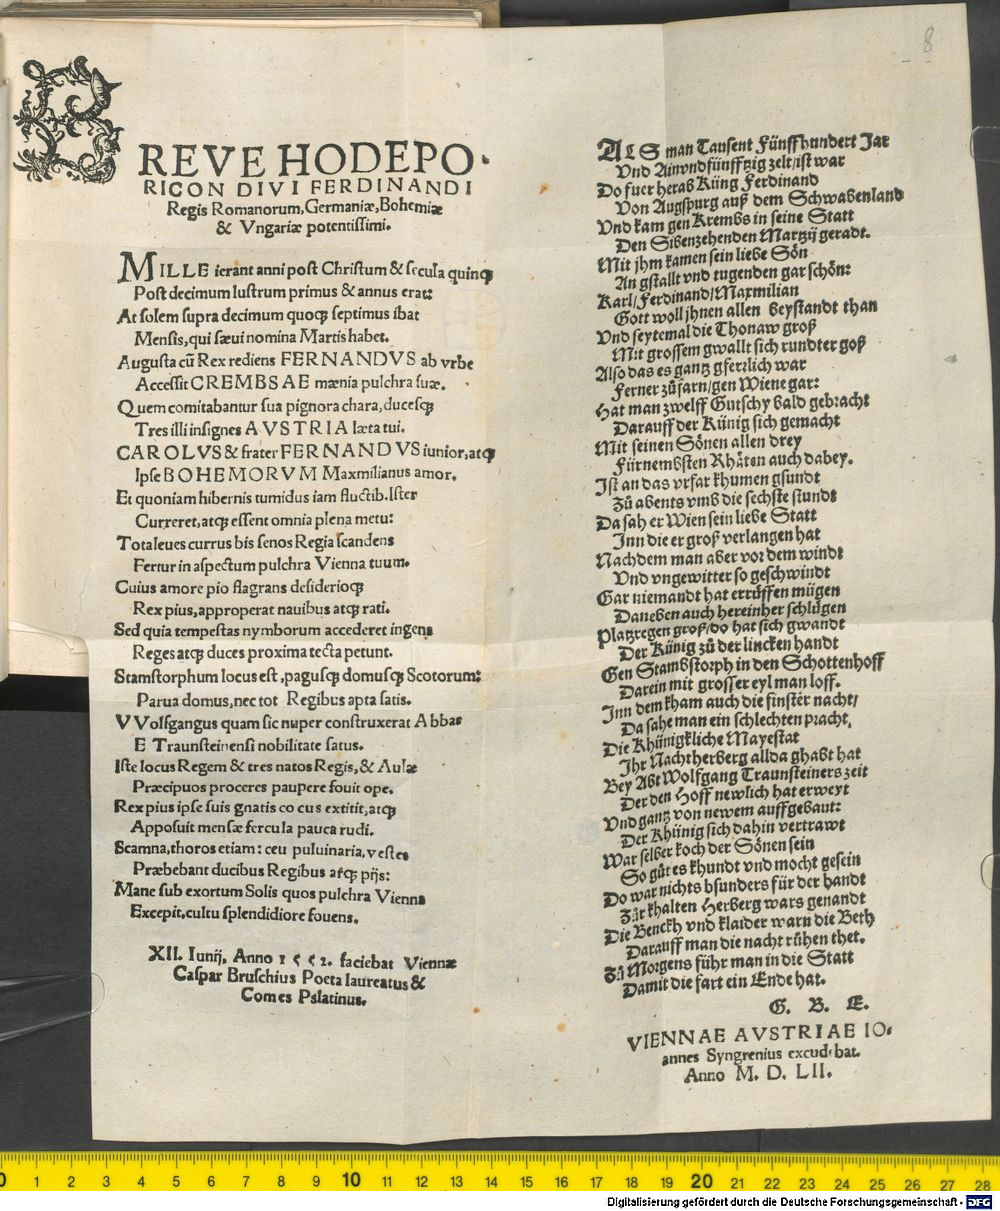 BREVE HODEPO-
RICON DIVI FERDINANDI
Regis Romanorum, Germaniæ, Bohemiæ
& Vngariæ potentissimi.
MILLE ierant anni post Christum & secula quinqꝫ
Post decimum lustrum primus & annus erat:
At solem supra decimum quoqꝫ septimus ibat
Mensis, qui sæui nomina Martis habet.
Augusta cū Rex rediens FERNANDVS ab vrbe
Accessit CREMBSAE mœnia pulchra suæ.
Quem comitabantur sua pignora chara, ducesqꝫ
Tres illi insignes AVSTRIA læta tui.
CAROLVS & frater FERNANDVS iunior, atqꝫ
Ipse BOHEMORVM Maxmilianus amor.
Et quoniam hibernis tumidus iam fluctib. Ister
Curreret, atqꝫ essent omnia plena metu:
Tota leues currus bis senos Regia scandens
Fertur in aspectum pulchra Vienna tuum.
Cuius amore pio flagrans desiderioqꝫ
Rex pius, approperat nauibus atqꝫ rati.
Sed quia tempestas nymborum accederet ingens
Reges atqꝫ duces proxima tecta petunt.
Stamstorphum locus est, pagusqꝫ domusqꝫ Scotorum:
Parua domus, nec tot Regibus apta satis.
VVolfgangus quam sic nuper construxerat Abbas
E Traunsteinensi nobilitate satus.
Iste locus Regem & tres natos Regis, & Aulæ
Præcipuos proceres paupere fouit ope.
Rex pius ipse suis gnatis cocus extitit, atqꝫ
Apposuit mensæ fercula pauca rudi.
Scamna, thoros etiam: ceu puluinaria, vestes
Præbebant ducibus Regibus atqꝫ pijs:
Mane sub exortum Solis quos pulchra Vienna
Excepit, cultu splendidiore fouens.
XII. Iunij, Anno 1552. faciebat Viennæ
Caspar Bruschius Poeta laureatus &
Comes Palatinus.
8
ALS man Tausent Fünffhundert Jar
Vnd Ainvndfünfftzig zelt/ist war
Do fuer herab Küng Ferdinand
Von Augspurg auß dem Schwabenland
Vnd kam gen Krembs in seine Statt
Den Sibenzehenden Martzij geradt.
Mit jhm kamen sein liebe Sön
An gstallt vnd tugenden gar schön:
Karl/Ferdinand/Maxmilian
Gott woll jhnen allen beystandt than
Vnd seytemal die Thonaw groß
Mit grossem gwallt sich rundter goß
Also das es gantz gferlich war
Ferner zů farn/gen Wiene gar:
Hat man zwelff Gutschy bald gebracht
Darauff der Künig sich gemacht
Mit seinen Sönen allen drey
Fürnembsten Rhäten auch dabey.
Ist an das vrfar khumen gsundt
Zů abents vmb die sechste stundt
Da sah er Wien sein liebe Statt
Inn die er groß verlangen hat
Nachdem man aber vor dem windt
Vnd vngewitter so geschwindt
Gar niemandt hat errůffen mügen
Daneben auch hereinher schlügen
Platzregen groß/do hat sich gwandt
Der Künig zů der lincken handt
Gen Stambstorph in den Schottenhoff
Darein mit grosser eyl man loff.
Inn dem kham auch die finster nacht/
Da sahe man ein schlechten pracht,
Die Khünigkliche Mayestat
Ihr Nachtherberg allda ghabt hat
Bey Abt Wolfgang Traunsteiners zeit
Der den Hoff newlich hat erweyt
Vnd gantz von newem auffgebaut:
Der Khünig sich dahin vertrawt
War selber koch der Sönen sein
So gůt es khundt vnd mocht gesein
Do war nichts bsunders für der handt
Zůr khalten Herberg wars genandt
Die Benckh vnd klaider warn die Beth
Darauff man die nacht růhen thet.
Zů Morgens führ man in die Statt
Damit die fart ein Ende hat.
G. B. E.
VIENNAE AVSTRIAE IO-
annes Syngrenius excudebat.
Anno M. D. LII.
0 1 2 3 4 5 6 7 8 9 10 11 12 13 14 15 16 17 18 19 20 21 22 23 24 25 26 27 28
Digitalisierung gefördert durch die Deutsche Forschungsgemeinschaft - DFG